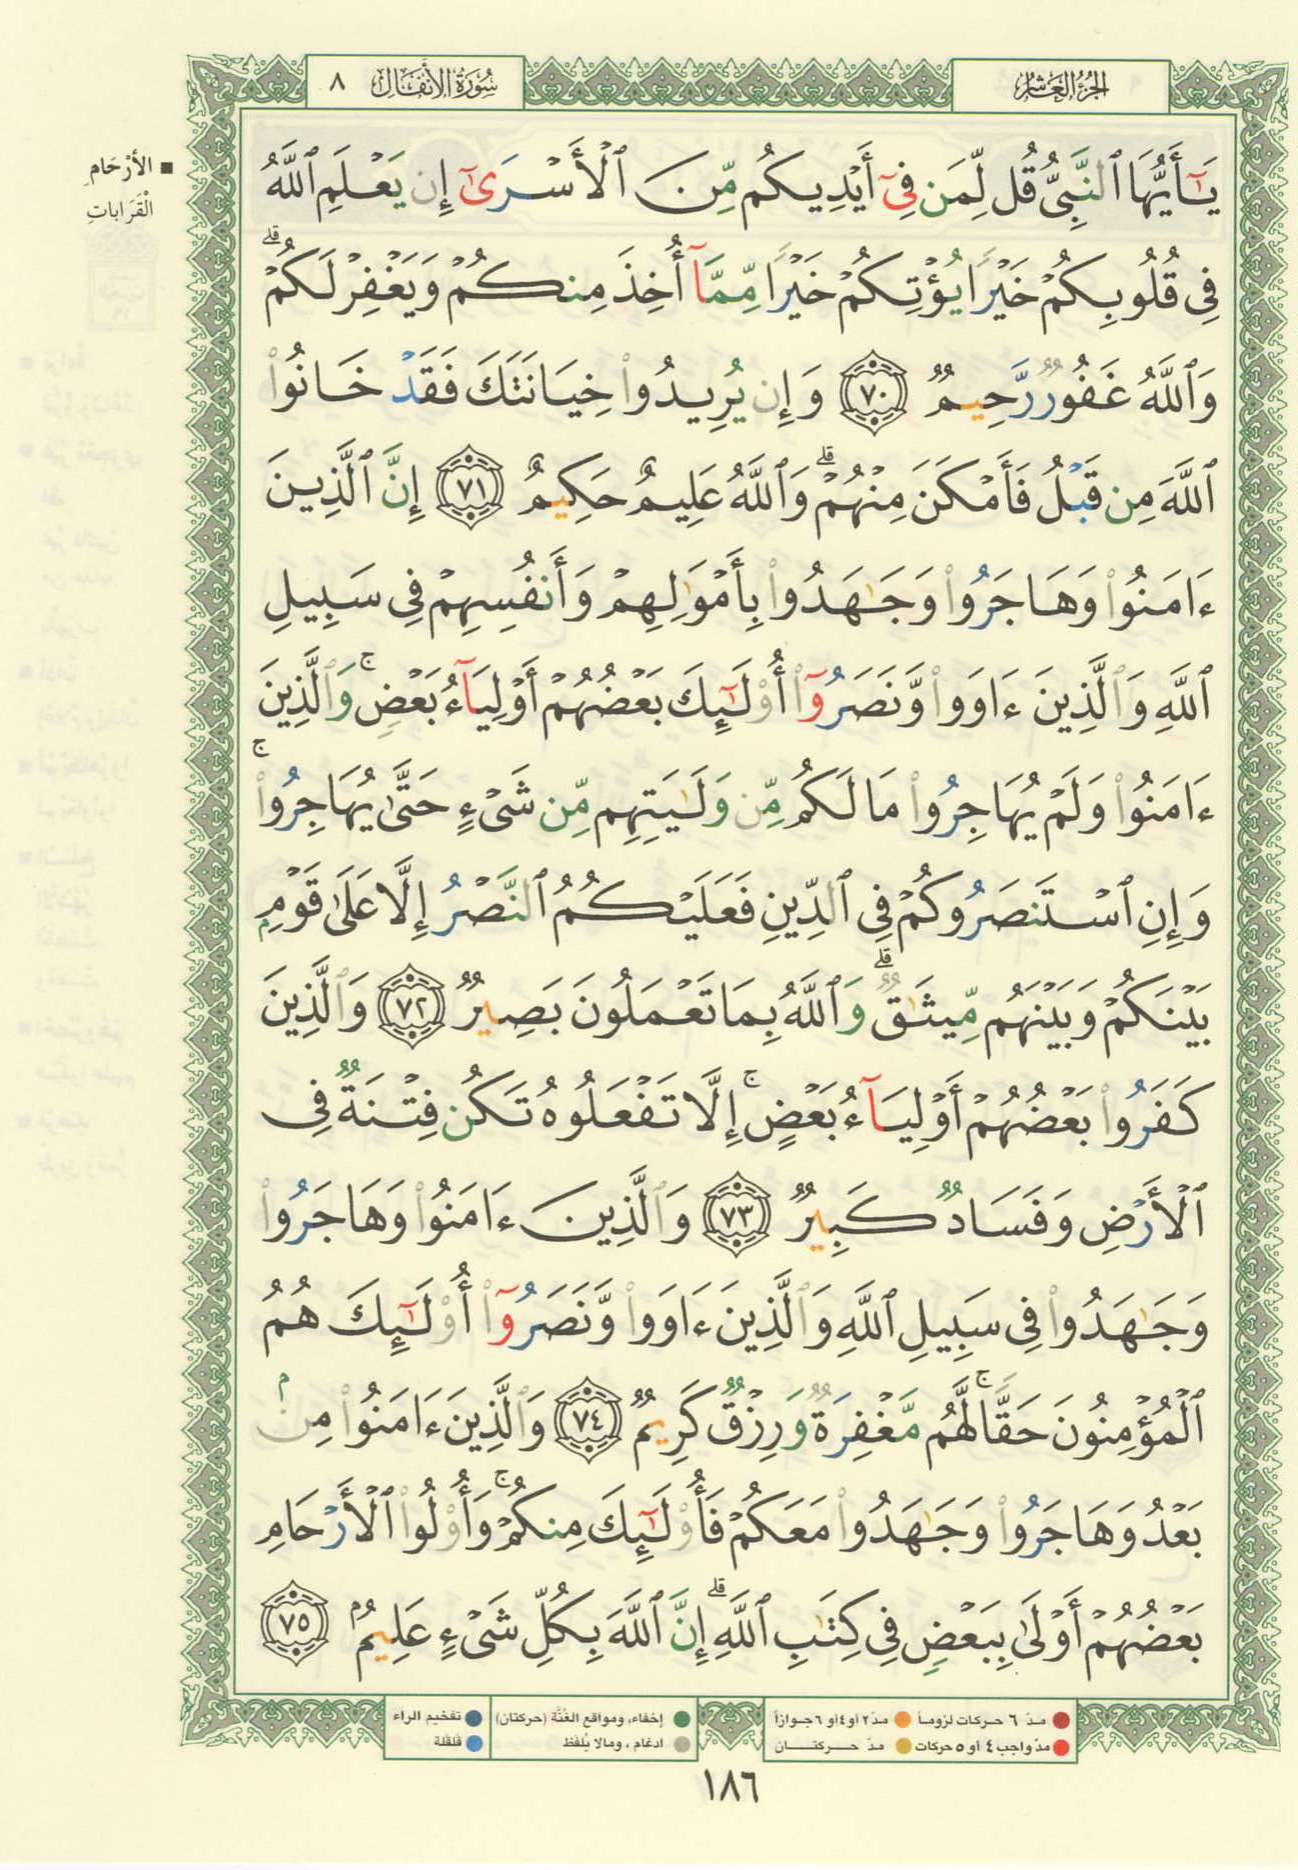 الجزء العاشر
سورة الأنفال ٨
يَـٰٓأَيُّهَا ٱلنَّبِىُّ قُل لِّمَن فِىٓ أَيْدِيكُم مِّنَ ٱلْأَسْرَىٰٓ إِن يَعْلَمِ ٱللَّهُ
فِى قُلُوبِكُمْ خَيْرًا يُؤْتِكُمْ خَيْرًا مِّمَّآ أُخِذَ مِنكُمْ وَيَغْفِرْ لَكُمْ ۗ
وَٱللَّهُ غَفُورٌ رَّحِيمٌ ﴿٧٠﴾ وَإِن يُرِيدُوا۟ خِيَانَتَكَ فَقَدْ خَانُوا۟
ٱللَّهَ مِن قَبْلُ فَأَمْكَنَ مِنْهُمْ ۗ وَٱللَّهُ عَلِيمٌ حَكِيمٌ ﴿٧١﴾ إِنَّ ٱلَّذِينَ
ءَامَنُوا۟ وَهَاجَرُوا۟ وَجَـٰهَدُوا۟ بِأَمْوَٰلِهِمْ وَأَنفُسِهِمْ فِى سَبِيلِ
ٱللَّهِ وَٱلَّذِينَ ءَاوَوا۟ وَّنَصَرُوٓا۟ أُو۟لَـٰٓئِكَ بَعْضُهُمْ أَوْلِيَآءُ بَعْضٍ ۚ وَٱلَّذِينَ
ءَامَنُوا۟ وَلَمْ يُهَاجِرُوا۟ مَا لَكُم مِّن وَلَـٰيَتِهِم مِّن شَىْءٍ حَتَّىٰ يُهَاجِرُوا۟ ۚ
وَإِنِ ٱسْتَنصَرُوكُمْ فِى ٱلدِّينِ فَعَلَيْكُمُ ٱلنَّصْرُ إِلَّا عَلَىٰ قَوْمٍۭ
بَيْنَكُمْ وَبَيْنَهُم مِّيثَـٰقٌ ۗ وَٱللَّهُ بِمَا تَعْمَلُونَ بَصِيرٌ ﴿٧٢﴾ وَٱلَّذِينَ
كَفَرُوا۟ بَعْضُهُمْ أَوْلِيَآءُ بَعْضٍ ۚ إِلَّا تَفْعَلُوهُ تَكُن فِتْنَةٌ فِى
ٱلْأَرْضِ وَفَسَادٌ كَبِيرٌ ﴿٧٣﴾ وَٱلَّذِينَ ءَامَنُوا۟ وَهَاجَرُوا۟
وَجَـٰهَدُوا۟ فِى سَبِيلِ ٱللَّهِ وَٱلَّذِينَ ءَاوَوا۟ وَّنَصَرُوٓا۟ أُو۟لَـٰٓئِكَ هُمُ
ٱلْمُؤْمِنُونَ حَقًّا ۚ لَّهُم مَّغْفِرَةٌ وَرِزْقٌ كَرِيمٌ ﴿٧٤﴾ وَٱلَّذِينَ ءَامَنُوا۟ مِنۢ
بَعْدُ وَهَاجَرُوا۟ وَجَـٰهَدُوا۟ مَعَكُمْ فَأُو۟لَـٰٓئِكَ مِنكُمْ ۚ وَأُو۟لُوا۟ ٱلْأَرْحَامِ
بَعْضُهُمْ أَوْلَىٰ بِبَعْضٍ فِى كِتَـٰبِ ٱللَّهِ ۗ إِنَّ ٱللَّهَ بِكُلِّ شَىْءٍ عَلِيمٌۢ ﴿٧٥﴾
■ الأرْحَامِ
الْقَرَاباتِ
مدّ ٦ حركات لزوماً ● مدّ ٢ أو ٤ أو ٦ جوازاً
مدّ واجب ٤ أو ٥ حركات ● مدّ حركتان
إخفاء، ومواقع الغُنَّة (حركتان)
ادغام ، ومالا يُلفَظ
تفخيم الراء
قلقلة
١٨٦